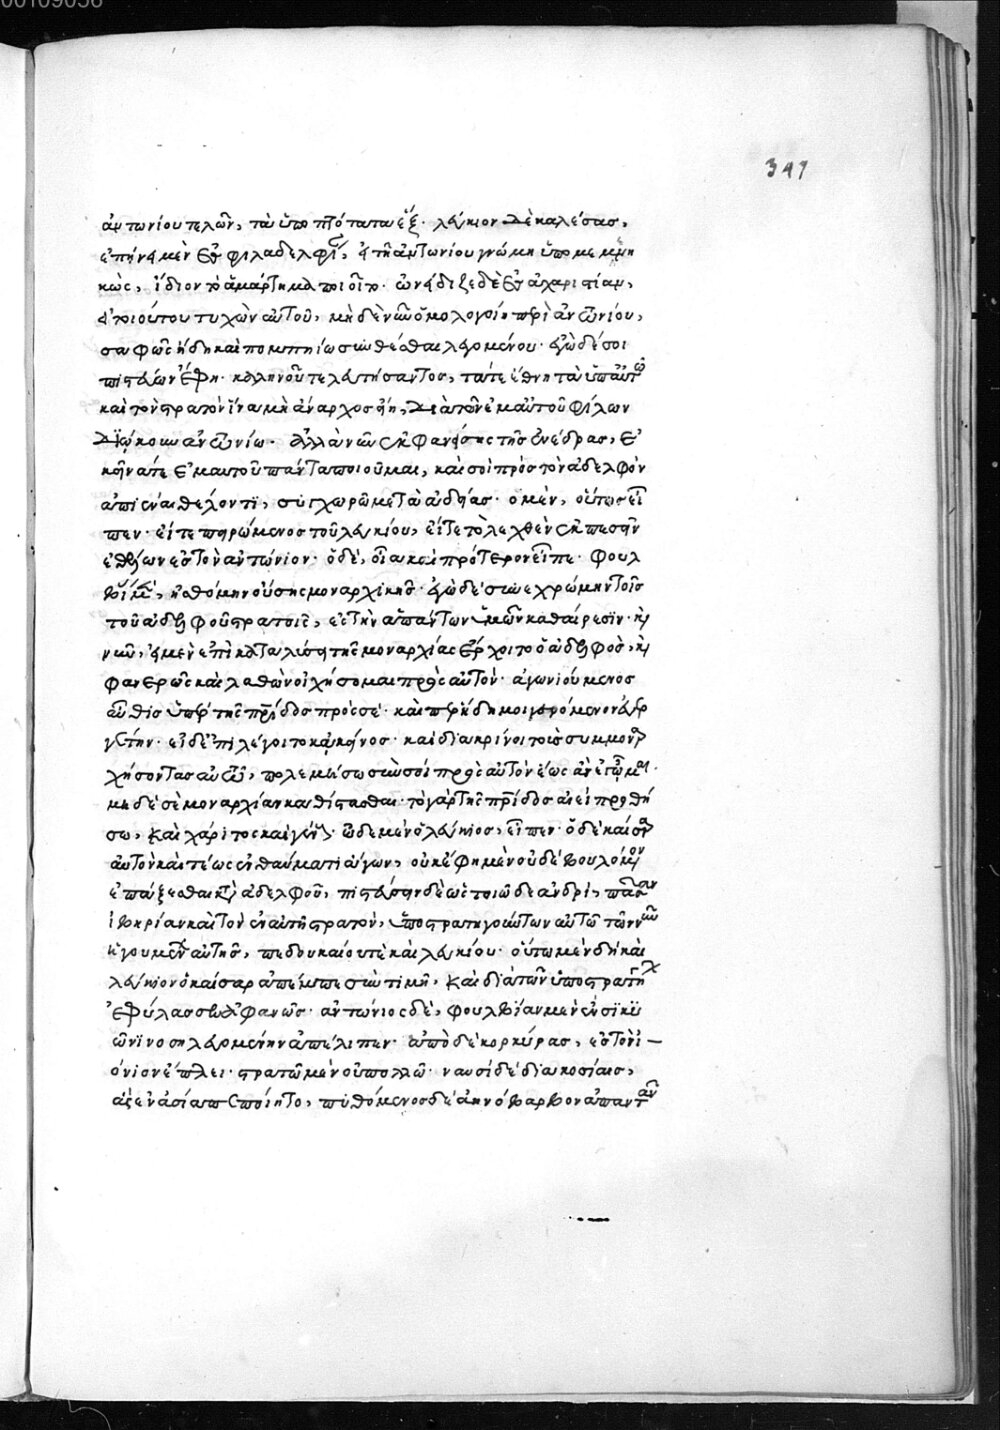 ἀντωνίου τελῶν, τὰ ὑποπτότατα ἐξ. λεύκιον δὲ καλέσας,
ἐπήνει μὲν ἐς φιλαδελφί, εἰ τῆ ἀντωνίου γνώμη ὑπομεμενη
κὼς, ἴδιον τὸ ἁμάρτημα ποιοῖτο. ὠνείδιζε δὲ ἐς ἀχαριστίαν,
εἰ τοιούτου τυχὼν αὐτοῦ, μὴ δὲ νῦν ὁμολογοίη περὶ ἀντωνίου,
σαφῶς ἤδη καὶ πομπηίω συντεθεῖσθαι λεγομένου. ἐγὼ δέ σοι
πιστεύων ἔφη. καληνοῦ τελευτήσαντος, τά τε ἔθνη τὰ ὑπ αὐτῶ
καὶ τὸν στρατὸν ἵνα μὴ ἄναρχος ἦ, διὰ τῶν ἐμαυτοῦ φίλων
διώκουν ἀντωνίω. ἀλλὰ νῦν ἐκφανείσης τῆς ἐνέδρας, ἐ
κεῖνά τε ἐμαυτοῦ πάντα ποιοῦμαι, καὶ σοὶ πρὸς τὸν ἀδελφὸν
ἀπιέναι θέλοντι, συγχωρῶ μετὰ ἀδείας. ὁ μὲν, οὕτως εἶ
πεν. εἴτε πειρώμενος τοῦ λευκίου, εἴτε τὸ λεχθὲν ἐκπεσεῖν
ἐθέλων ἐς τὸν ἀντώνιον. ὁ δὲ, οἷα καὶ πρότερον εἶπε. φουλ
βίας μὲν, ἠσθόμην οὔσης μοναρχικῆς. ἐγὼ δὲ συνεχρώμην τοῖς
τοῦ ἀδελφοῦ στρατοῖς, ἐς τὴν ἁπάντων ὑμῶν καθαίρεσιν. καὶ
νῦν, εἰ μὲν ἐπὶ καταλύσει τῆς μοναρχίας ἔρχοιτο ὁ ἀδελφὸς, καὶ
φανερῶς καὶ λαθὼν οἰχήσομαι πρὸς αὐτὸν. ἀγωνιούμενος
αὖθις ὑπὲρ τῆς πατρίδος πρὸς σέ. καὶ περ ἤδη μοι γενόμενον εὐερ
γέτην. εἰ δ ἐπιλέγοιτο κἀκεῖνος. καὶ διακρίνοι τοὺς συμμοναρ
χήσοντας αὐτῶ, πολεμήσω σὺν σοὶ πρὸς αὐτὸν ἕως ἂν ἡγῶμαι.
μηδὲ σὲ μοναρχίαν καθίστασθαι. τὸ γὰρ τῆς πατρίδος αἰεὶ προθή
σω, καὶ χάριτος καὶ γένους. ὧδε μὲν ὁ λεύκιος, εἶπεν. ὁ δὲ καῖσαρ
αὐτὸν καὶ τέως ἐν θαύματι ἄγων, οὐκ ἔφη μὲν οὐδὲ βουλόμενον
ἐπάξεσθαι κατὰ ἀδελφοῦ, πιστεύσειν δὲ ὡς τοιῶδε ἀνδρὶ, πᾶσαν
ἰβηρίαν καὶ τὸν ἐν αὐτῆ στρατὸν, ὑποστρατηγούντων αὐτῶ τῶν νῦν
ἡγουμένων αὐτῆς, πεδουκαίου τε καὶ λευκίου. οὕτω μὲν δὴ καὶ
λεύκιον ὁ καῖσαρ ἀπέπεμπε σὺν τιμῆ, καὶ διὰ τῶν ὑποστρατήγ
ἐφύλασσεν ἀφανῶς. ἀντώνιος δὲ, φουλβίαν μὲν ἐν σικυ
ῶνι νοσηλευομένην ἀπέλιπεν. ἀπὸ δὲ κορκύρας, ἐς τὸν ἰ
όνιον ἔπλει. στρατῶ μὲν οὐ πολλῶ. ναυσὶ δὲ διακοσίαις,
ἃς ἐν ἀσία πεποίητο, πυθόμενος δὲ ἀηνόβαρβον ἀπαντᾶν